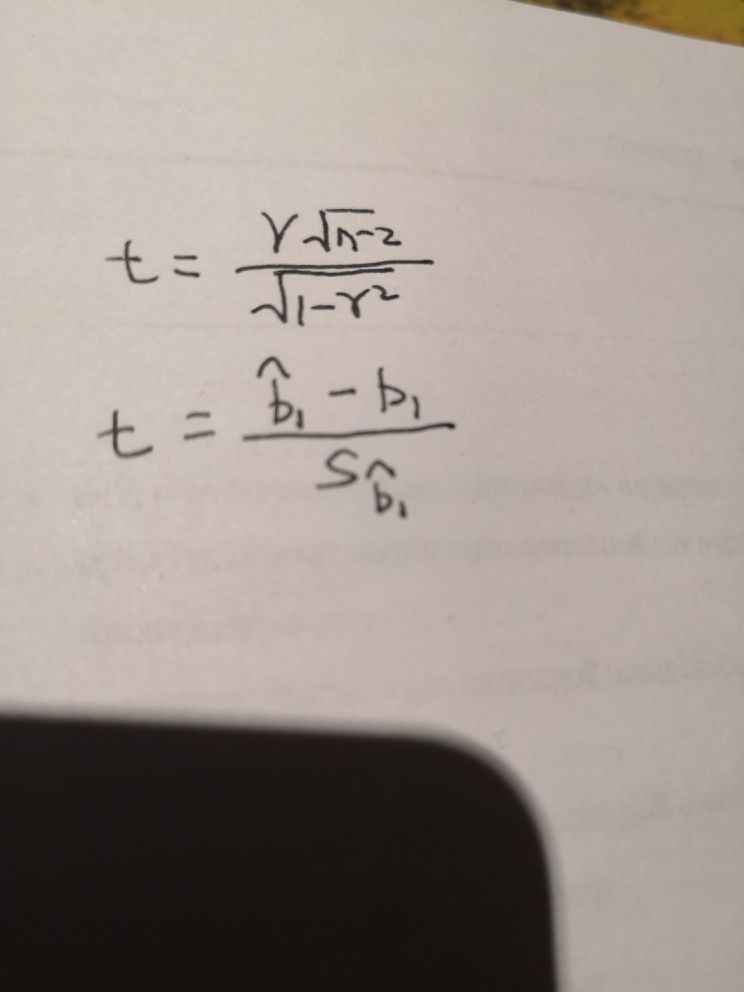 t = r√n-2 / √1-r²
t = b̂₁ - b₁ / S_b̂₁